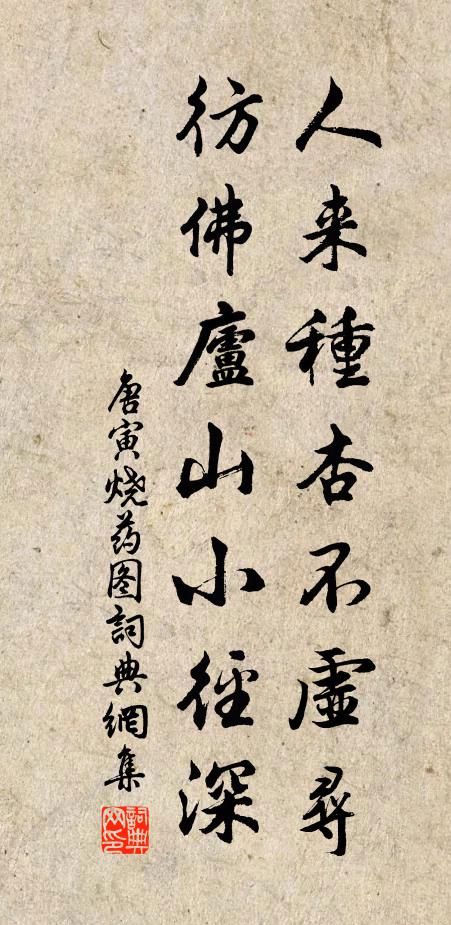 人来種杏不虛尋
彷佛廬山小徑深
唐寅烧药图詞典網集
詞典
网印